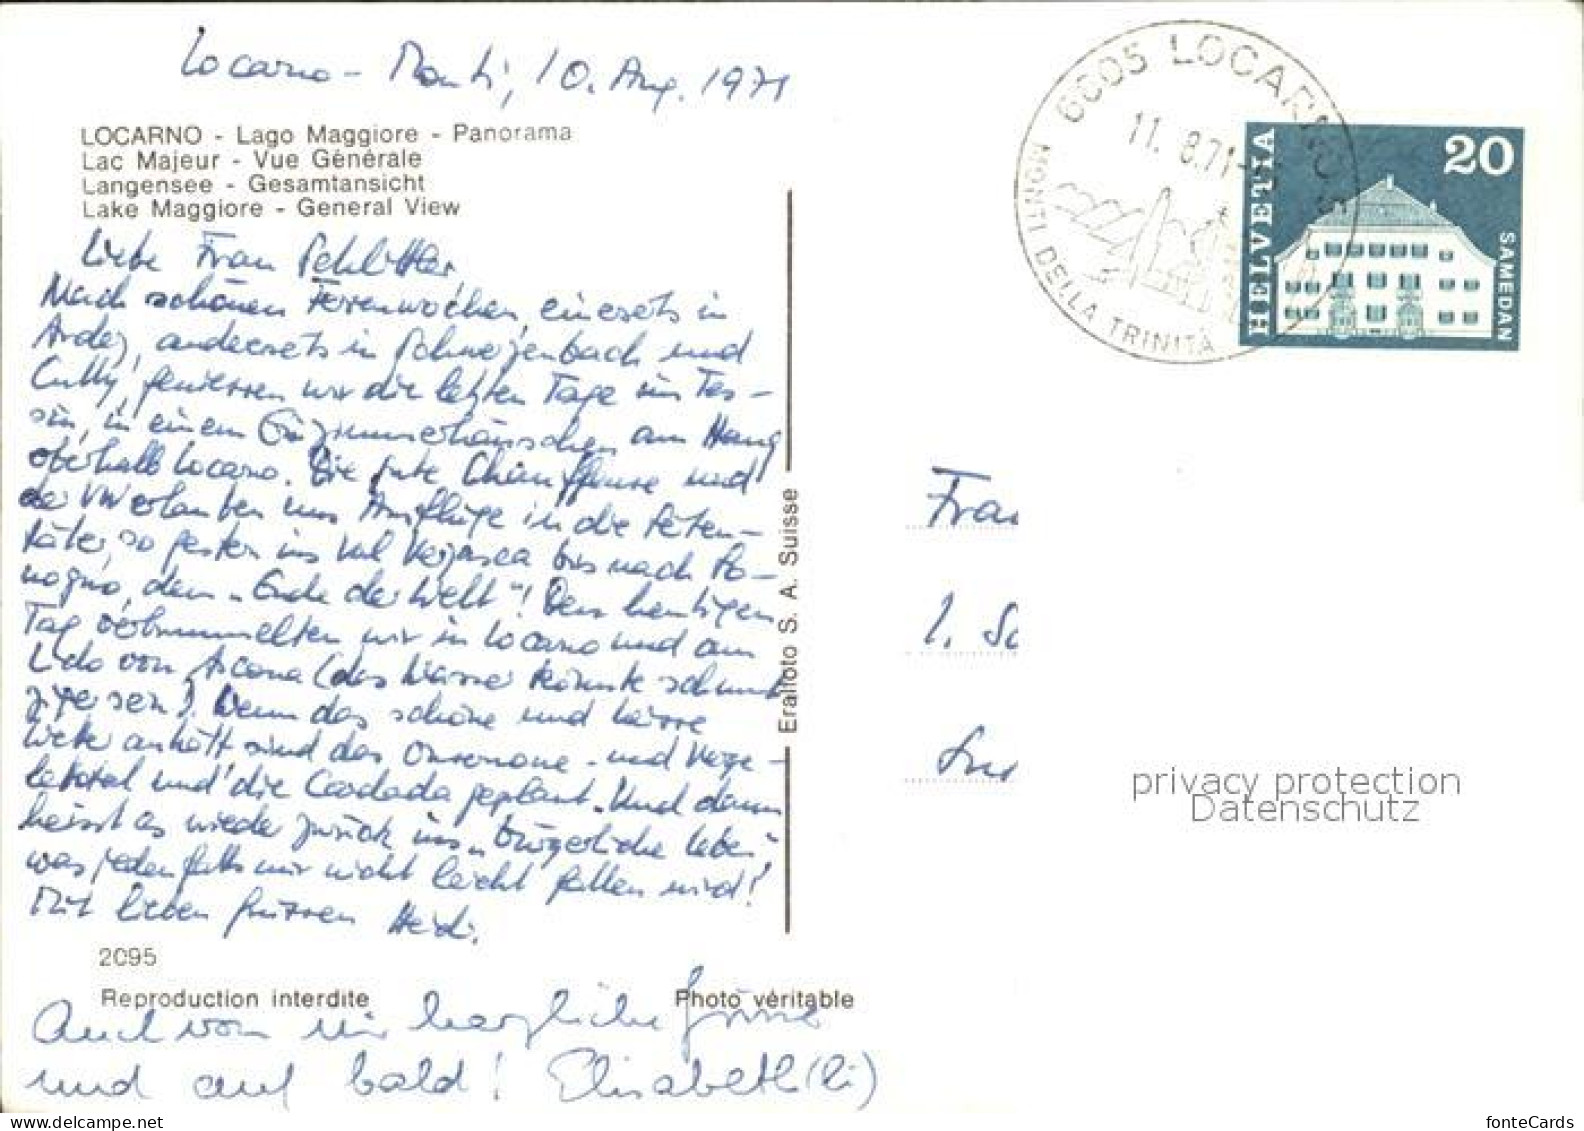 Locarno - Monti, 10. Aug. 1971
LOCARNO - Lago Maggiore - Panorama
Lac Majeur - Vue Générale
Langensee - Gesamtansicht
Lake Maggiore - General View
Liebe Frau Schlittler,
Nach schönen Ferienwochen, einerseits in
Ardez, anderseits in und
Cully, geniessen wir die letzten Tage im Tes-
sin, in einem am Hang
oberhalb Locarno. Die gute Chauffeuse und
der VW erlauben uns Ausflüge in die Seiten-
täler, so gestern ins Val Verzasca bis nach So-
nogno, dem „Ende der Welt"! Den heutigen
Tag verbummelten wir in Locarno und am
Lido von Ascona (das Wasser könnte
sein). Wenn das schöne und heisse
Wetter anhält sind das Onsernone- und
und die Cardada geplant. Und dann
heisst es wieder zurück ins „bürgerliche Leben"
was jedenfalls mir nicht leicht fallen wird!
Mit lieben Grüssen Heidi.
2095
Reproduction interdite
Photo véritable
Auch von mir herzliche Grüsse
und auf bald! Elisabeth (li)
Eralfoto S. A. Suisse
6605 LOCARNO 5
11. 8.71
MONTI DELLA TRINITÀ
HELVETIA
20
SAMEDAN
Frau
1. Sc
privacy protection
Datenschutz
fonteCards
delcampe.net